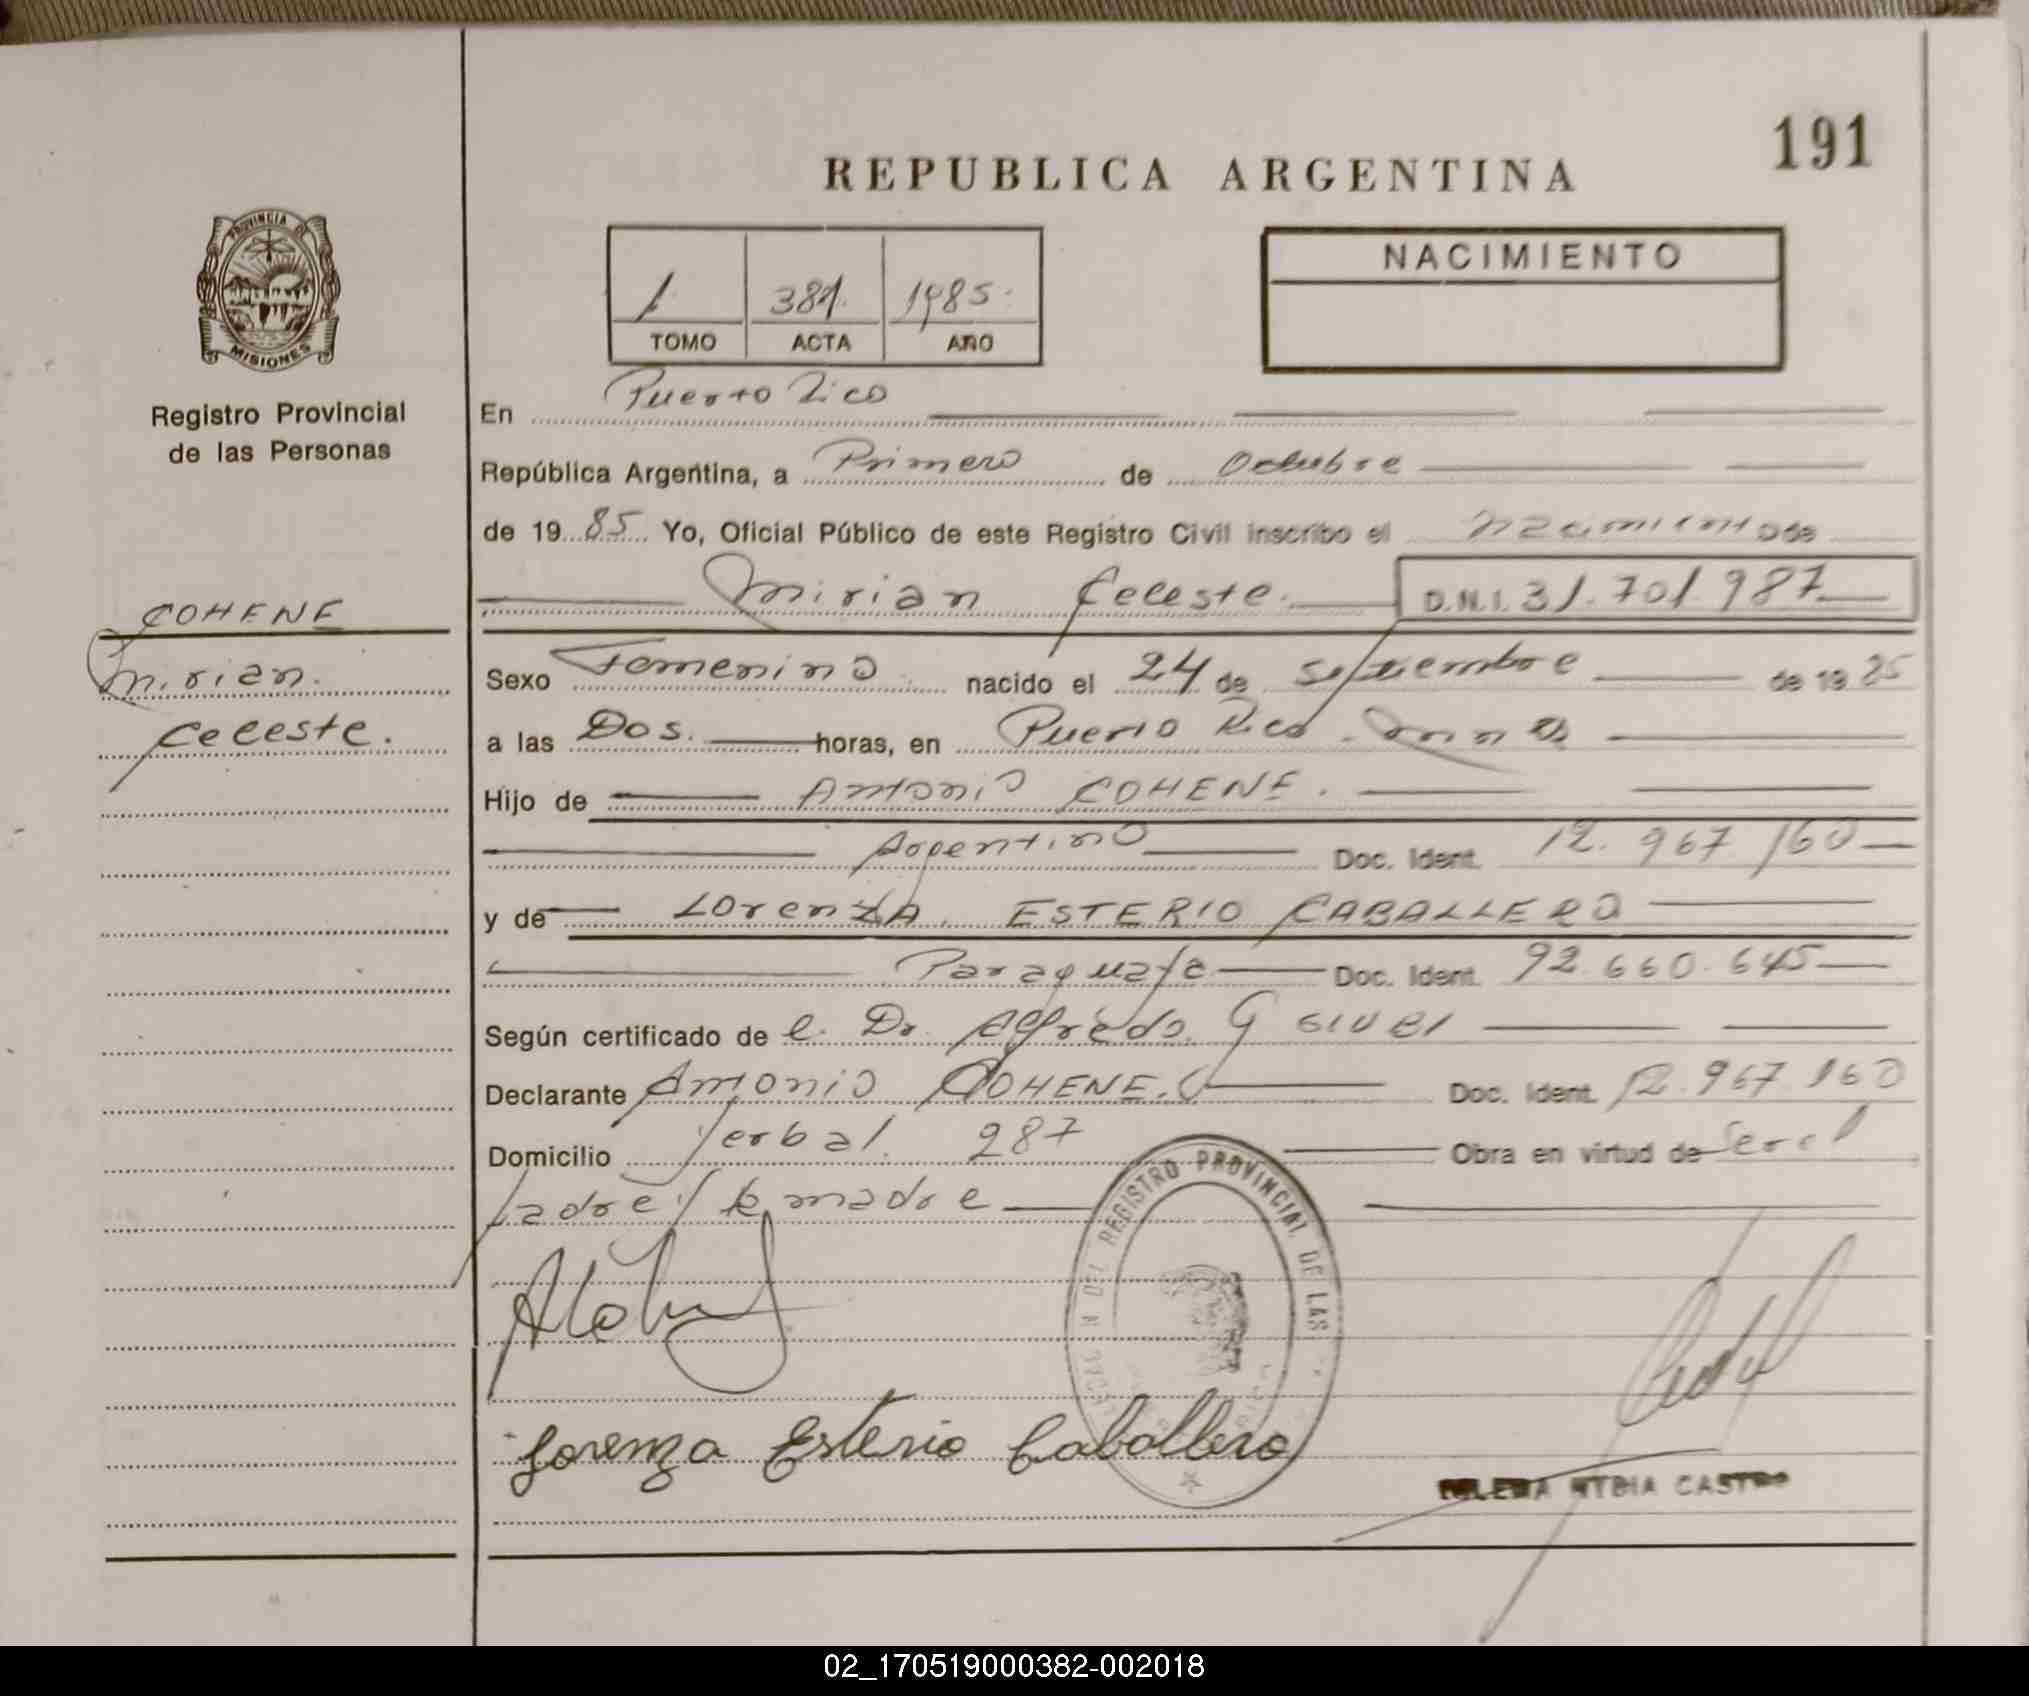 191
REPUBLICA ARGENTINA
PROVINCIA DE
MISIONES
Registro Provincial
de las Personas
1 381. 1985.
TOMO ACTA AÑO
NACIMIENTO
En Puerto Rico
República Argentina, a Primero de Octubre
de 1985 Yo, Oficial Público de este Registro Civil inscribo el nacimiento de
Mirian Celeste. D.N.I. 31.701.987
COHENE
Mirian.
Celeste.
Sexo Femenino nacido el 24 de Septiembre de 1985
a las Dos. horas, en Puerto Rico. Mnes
Hijo de Antonio COHENE.
Argentino Doc. Ident. 12.967.160
y de Lorenza. ESTERIO CABALLERO
Paraguaya Doc. Ident. 92.660.645
Según certificado de Dr. Alfredo G
Declarante Antonio COHENE. Doc. Ident. 12.967.160
Domicilio Yerbal. 287 Obra en virtud de Ser el
padre y la madre
REGISTRO PROVINCIAL DE LAS
Lorenza Esterio Caballero
CASTRO
02_170519000382-002018